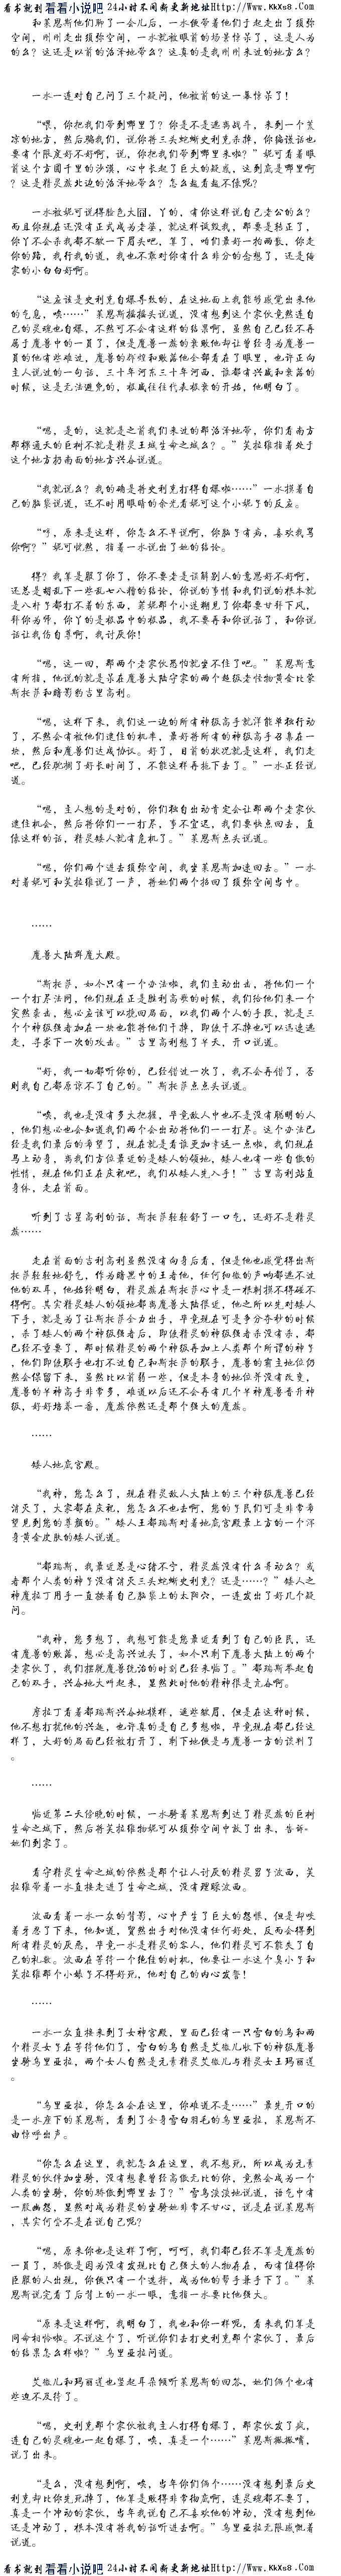 看书就到 看看小说吧 24小时不间断更新地址Http://Www.KkXs8.Com
和莱恩斯他们聊了一会儿后，一水便带着他们于起走出了须弥
空间，刚刚走出须弥空间，一水就被眼前的场景惊呆了，这是人为
的么？这还是以前的沼泽地带么？这真的是我刚刚来过的地方么？
一水一连对自己问了三个疑问，他被眼前的这一幕惊呆了！
“喂，你把我们带到哪里了？你是不是逃离战斗，来到一个荒
凉的地方，然后骗我们，说你将三头蛇蜥史利克杀掉，你编谎话也
要有个限度好不好啊，说，你把我们带到哪里来啦？”妮可看着眼
前这个方圆千里的沙漠，心中长起了巨大的疑惑，这到底是哪里啊
？这是精灵族北边的沼泽地带么？怎么越看越不像呢？
一水被妮可说得脸色大囧，丫的，有你这样说自己老公的么？
而且你现在还没有正式成为老婆，就这样误毁我，那要是转正了，
你丫不会杀我都不皱一下眉头吧，算了，咱们最好一拍两散，你走
你的路，我行我的道，我也不敢对你有什么非分的念想了，还是倩
家的小白白好啊。
“这应该是史利克自爆导致的，在这地面上我能够感觉出来他
的气息，唉……”莱恩斯摇摇头说道，没有想到这个家伙竟然连自
己的灵魂也自爆，不然可不会有这样的结果啊，虽然自己已经不再
属于魔兽中的一員了，但是魔兽一族的衰败他却让曾经身为魔兽一
員的他有些难过，魔兽的辉煌和败落他全部看在了眼里，也许正向
主人说过的一句话，三十年河东三十年河西，谁都有兴盛和衰落的
时候，这是无法避免的，极盛往往代表极衰的开始，他明白了。
“嗯，是的，这就是之前我们来过的那沼泽地带，你们看南方
那棵通天的巨树不就是精灵王城生命之城么？。”芙拉维指着处于
这个地方扔南面的地方兴奋说道。
“我就说么？我的确是将史利克打得自爆啦……”一水摸着自
己的脑袋说道，还不时用眼睛的余光看妮可这个小妮子的反应。
“哼，原来是这样，你怎么不早说啊，你脑子有病，喜欢我骂
你啊？”妮可恍然，指着一水说出了她的结论。
得？我算是服了你了，你不要老是误解别人的意思好不好啊，
还总是胡乱下一些乱七八糟的结论，你说的事情和我们说的根本就
是八杆子都打不着的东西，若妮那个小迷糊见了你都要甘拜下风，
拜你为师，你丫的是极品中的极品，我不要再和你说话了，和你说
话让我伤自尊啊，我讨厌你！
“嗯，这一回，那两个老家伙恐怕就坐不住了吧。”莱恩斯意
有所指，他说的就是呆在魔兽大陆守家的两个超级老怪物黄金比蒙
斯托莎和暗影豹吉里高利。
“嗯，这样下来，我们这一边的所有神级高手就洋能单独行动
了，不然会有被他们逮住的机率，最好将所有的神级高手召集在一
块，然后和魔兽们达成协议。好了，目前的状况就是这样，我们走
吧，已经耽搁了好长时间了，不能这样再拖下去了。”一水正经说
道。
“嗯，主人想的是对的，你们独自出动肯定会让那两个老家伙
逮住机会，然后将你们一一打尽，事不宜迟，我们要快点回去，直
像这样的话，精灵矮人就有危机了。”莱恩斯点头说道。
“嗯，你们两个进去须弥空间，我坐莱恩斯加速回去。”一水
对着妮可和芙拉维说了一声，将她们两个招回了须弥空间当中。
……
魔兽大陆群魔大殿。
“斯托莎，如今只有一个办法啦，我们主动出击，将他们一个
一个打尽法网，他们现在正是胜利高歌的时候，我们给他们来一个
突然袭击，想必应该可以挽回局面，以我们两个人的手段，就是三
个个神级强者加在一块也能将他们干掉，即使干不掉也可以迅速逃
走，寻求下一次的攻击。”吉里高利想了半天，开口说道。
“好，我一切都听你的，已经错过一次了，我不会再错了，否
则我自己都原谅不了自己的。”斯托莎点点头说道。
“唉，我也是没有多大把握，毕竟敌人中也不是没有聪明的人
，他们想必也会知道我们两个会出动将他们一一打尽。这个办法已
经是我们最后的希望了，现在就是看谁更加幸运一点啦，我们现在
马上动身，离我们方位最近的是矮人的领地，矮人也有一些自傲的
性情，现在他们正在庆祝吧，我们从矮人先入手！”吉里高利站直
身体，走在前面。
听到了吉星高利的话，斯托莎轻轻舒了一口气，还好不是精灵
族……
走在前面的吉利高利虽然没有向身后看，但是他也感觉得出斯
托莎轻轻地舒气，作为暗黑中的王者他，任何细微的声响都逃不过
他的双耳，他始终明白，精灵族在斯托莎心中是一根刺摸不得碰不
得啊。其实精灵矮人的领地都离魔兽大陆很近，他之所以先对矮人
下手，就是为了让斯托莎全力出手，毕竟现在可是争分夺秒的时候
，杀了矮人的两个神级强者后，即使精灵的神级强者杀没有杀，都
已经不重要了，那时候精灵的两个神级再加上人类那个所谓的神子
，他们即使联手也打不过自己和斯托莎的联手，魔兽的霸主地位仍
然会保留下来，虽然比以前弱一些，但是本身的地位并没有改变，
魔兽的半神高手非常多，难道以后还不会再有几个半神魔兽晋升神
级，好好培养一番，魔族依然还是那个强大的魔族。
……
矮人地底宫殿。
“我神，您怎么了，现在精灵敌人大陆上的三个神级魔兽已经
消灭了，大家都在庆祝，您怎么不也去啊，您的子民们可是非常希
望见到您的尊颜的。”矮人王都瑞斯对着地底宫殿最上方的一个浑
身黄金皮肤的矮人说道。
“都瑞斯，我最近总是心绪不宁，精灵族没有什么哥动么？或
者那个人类的神子没有消灭三头蛇蜥史利克？还是……？”矮人之
神摩拉丁用手一直揉着自己脑袋上的太阳穴，一连发出了好几个疑
问。
“我神，您多想了，我想可能是您最近看到了自己的臣民，还
有魔兽的败落，想必是高兴过头了，如今只剩下魔兽大陆上的两个
老家伙了，我们摆脱魔兽统治的时刻已经来临了。”都瑞斯举起自
己的双手，兴奋地大叫起来，显然此时他的精神很是亢奋啊。
摩拉丁看着都瑞斯兴奋地摸样，遮些皱眉，但是在这种时候，
他不想打扰他的兴趣，也许真的是自己多想啦，毕竟现在都已经这
样了，大好的局面已经被打开了，剩下地便是与魔兽一方的谈判了
。
……
临近第二天傍晚的时候，一水骑着莱恩斯到达了精灵族的巨树
生命之城下，然后将芙拉维物妮可从须弥空间中放了出来，告诉·
她们到家了。
看守精灵生命之城的依然是那个让人讨厌的精灵男子波西，芙
拉维带着一水直接走进了生命之城，没有理睬波西。
波西看着一水一众的背影，心中产生了巨大的怨恨，但是却咬
着牙忍了下来，他知道，贸然出手对他没有任何好处，反而会得到
所有精灵的反恶，毕竟一水是精灵的客人，他们精灵可不能失了自
己的礼数。波西在等待一个绝佳的时机，他要让一水这个臭小子和
芙拉维那个小婊子不得好死，他对自己的内心发誓！
……
一水一众直接来到了女神宫殿，里面已经有一只雪白的鸟和两
个精灵女子在等待他们了，雪白的鸟自然是艾微儿胯下的神级魔兽
坐骑鸟里亚拉，两个女人自然是元素精灵艾微儿与精灵女王玛丽道
。
“鸟里亚拉，你怎么会在这里，你难道不是……”最先开口的
是一水座下的莱恩斯，看到了全身雪白羽毛的鸟里亚拉，莱恩斯不
由惊呼出声。
“你怎么在这里，我就怎么在这里，我不想死，所以成为元素
精灵的伙伴加坐骑，没有想象曾经高傲无比的你，竟然会成为一个
人类的坐骑，你的骄傲到哪里去了？”雪鸟淡淡地说道，语气中有
一股幽怨，显然对成为精灵的坐骑她非常不甘心，说是在说莱恩斯
，其实何尝不是在说自己呢？
“嗯，原来你也是这样了啊，呵呵，我们都已经不算是魔族的
一員了，骄傲是因为没有发现比自己强大的人物存在，而有值得你
臣服的人出现，你便只有一个选择，成为他的帮手兼手下了。”莱
恩斯说完看了后背上的一水一眼，意指一水要比他强大。
“原来是这样啊，我明白了，我也和你一样呢，看来我们算是
同命相怜啦。不说这个了，听说你们去打史利克那个家伙了，最后
的结果怎么样啦？”鸟里亚拉问道。
艾微儿和玛丽道也竖起耳朵倾听莱恩斯的回答，她们俩个也有
些迫不及待了。
“嗯，史利克那个家伙被我主人打得自爆了，那家伙发了疯，
连自己的灵魂也一起自爆了，唉，真是一个……”莱恩斯撇撇嘴，
说了出来。
“是么，没有想到啊，唉，当年你们俩个……没有想到最后史
利克却比你先死掉了，他算是败得非常彻底啊，连灵魂都不要了，
真是一个冲动的家伙，当年我说自己不喜欢他的冲动，没有想到他
还是冲动了，根本没有将我的话听进去啊。”鸟里亚拉无限感慨着
说道。
看书就到 看看小说吧 24小时不间断更新地址Http://Www.KkXs8.Com